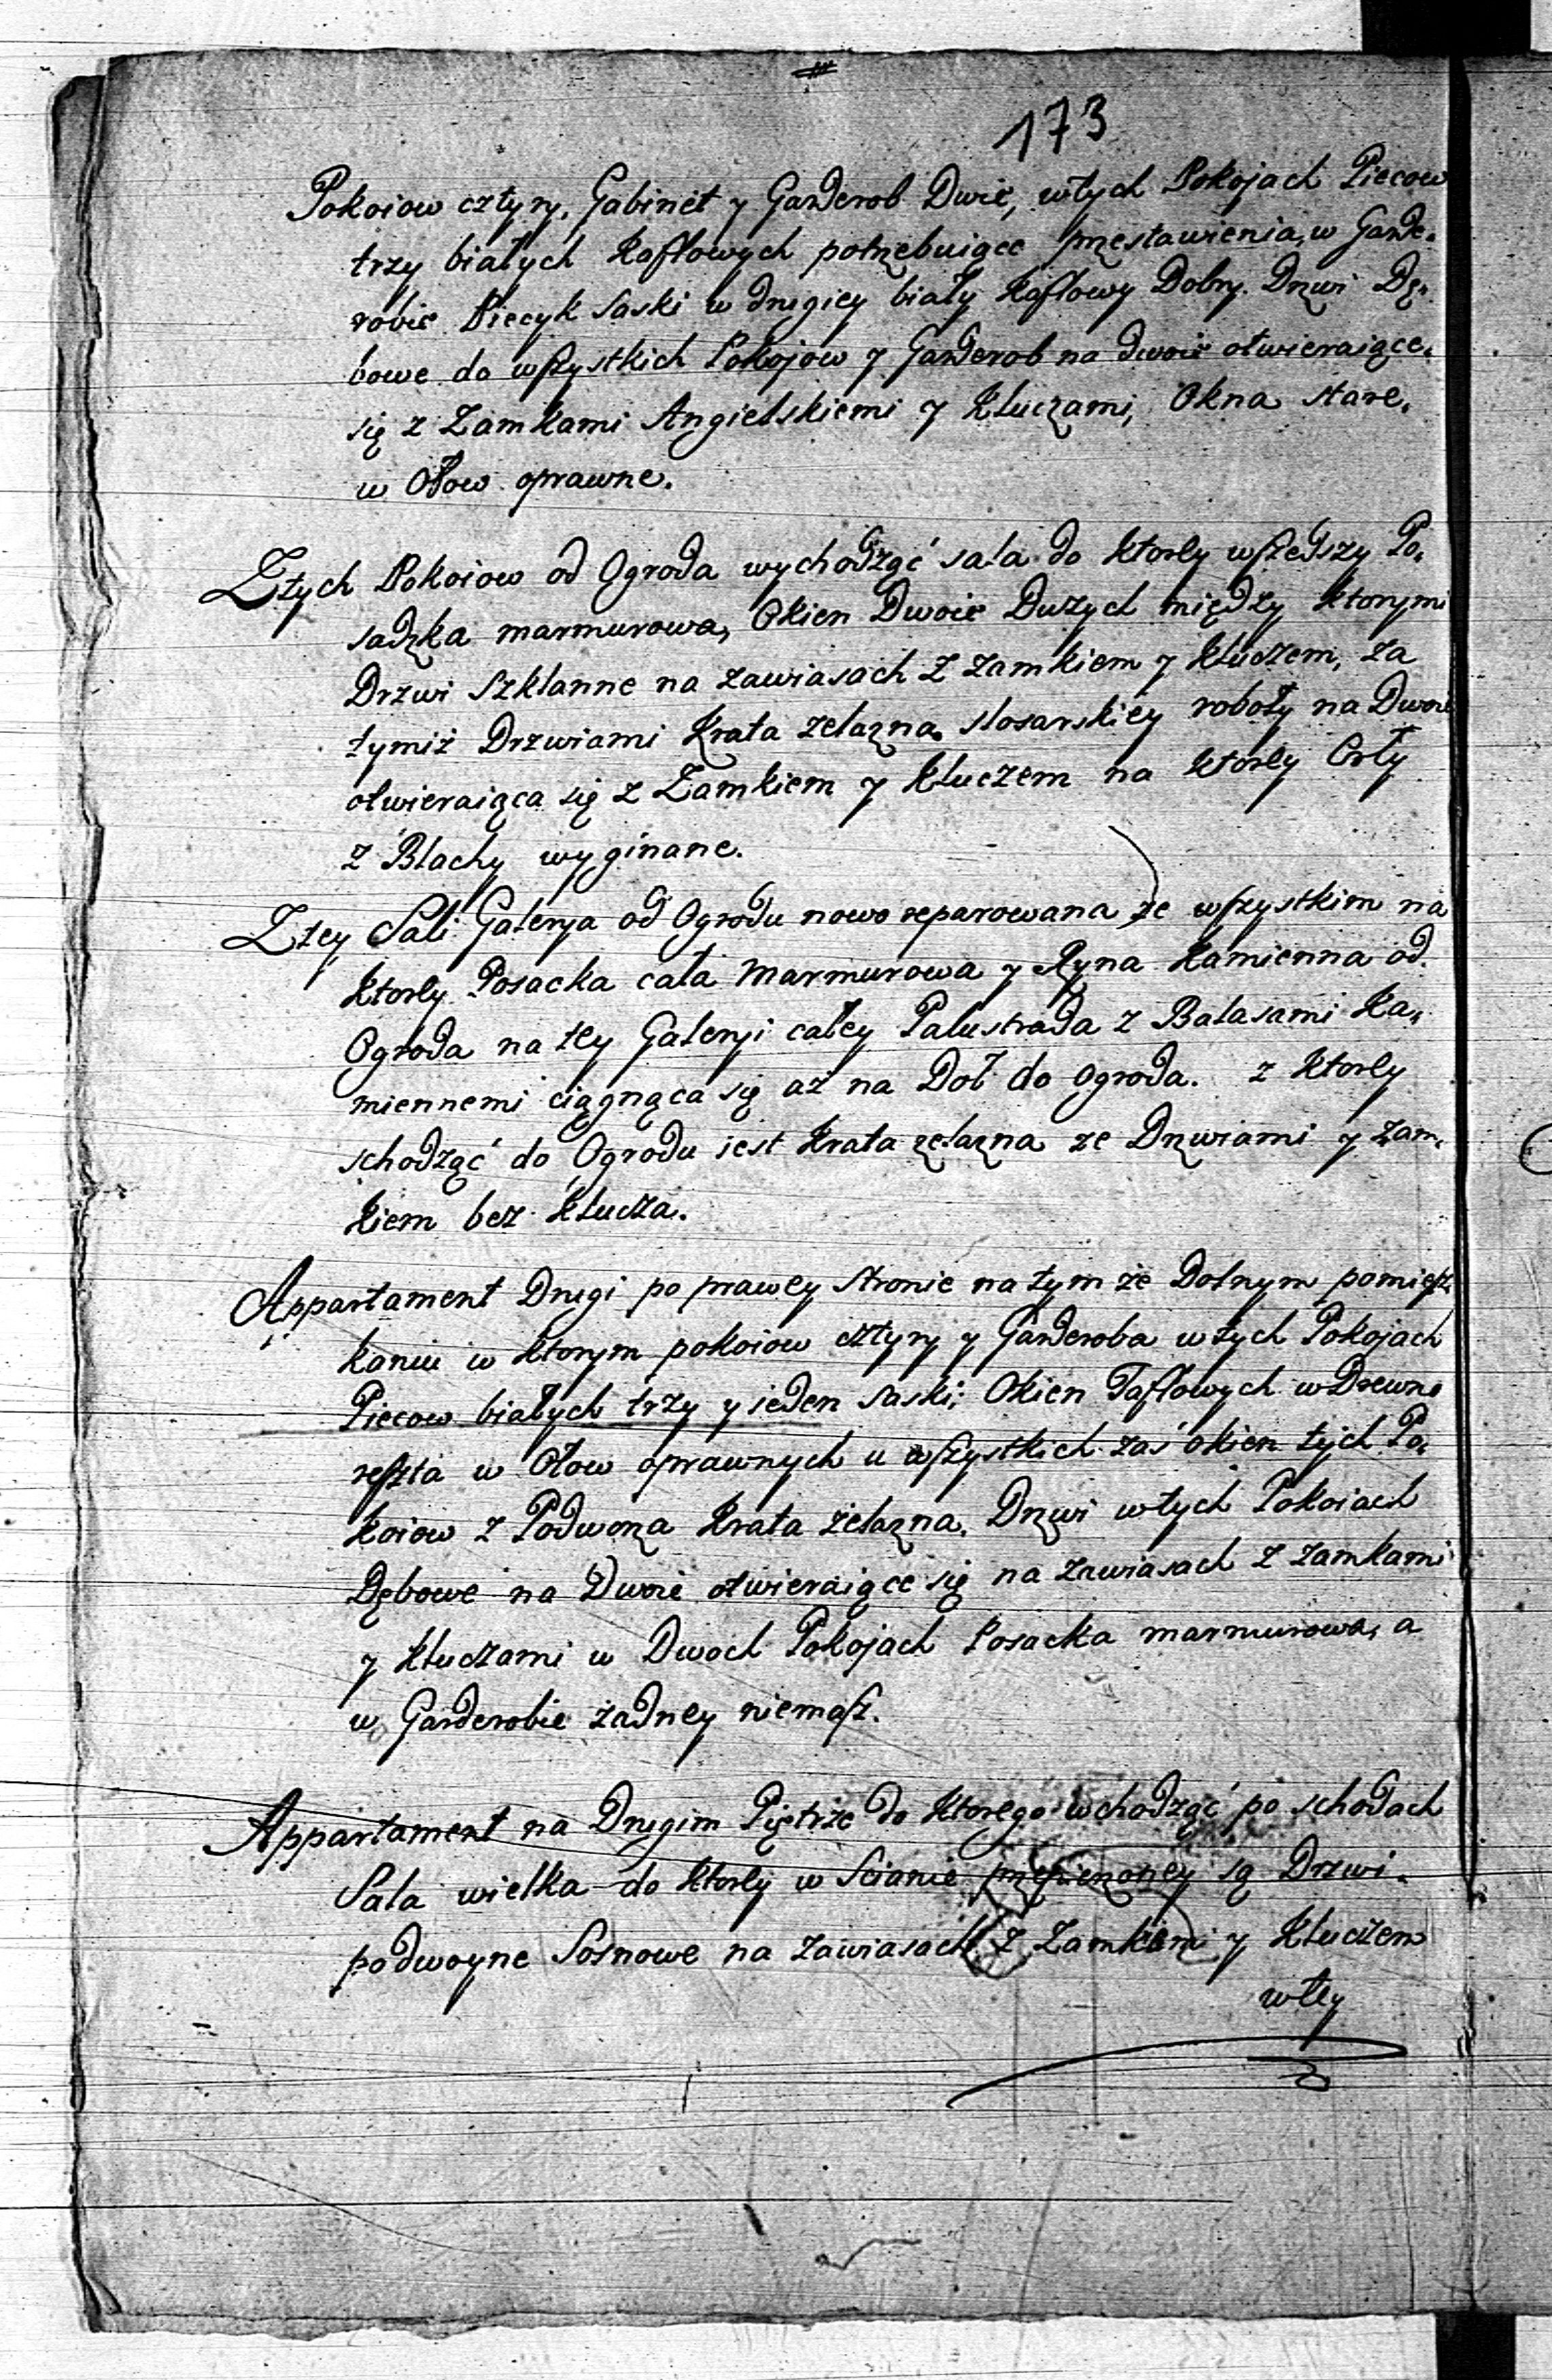 173
Pokoiow cztyry, Gabinet y Garderob Dwie, w tych Pokojach Piecow
trzy białych Kaflowych potrzebuiące przestawienia, w Garde„
robie Piecyk Saski w drugiey biały Kaflowy Dobry. Drzwi Dę„
bowe do wszystkich Pokojow y Garderob na dwoie otwieraiące„
się z Zamkami Angielskiemi y Kluczami, Okna stare„
w Ołow oprawne.
Z tych Pokoiow od Ogroda wychodząć sala do ktorey wszedszy Po„
sadzka marmurowa, Okien Dwoie Dużych między ktorymi
Drzwi Szklanne na zawiasach z zamkiem y Kluczem, za
tymiż Drzwiami Krata zelazna slosarskiey roboty na Dwoie
otwieraiąca się z Zamkiem y Kluczem na ktorey Orły
z Blachy wyginane.
Z tey Sali Galerya od Ogrodu nowo reparowana ze wszystkim na
ktorey Posacka cała Marmurowa y Ryna Kamienna od
Ogroda na tey Galeryi całey Palustrada z Balasami Ka„
miennemi ciągnąca się aż na Doł do Ogroda. z ktorey
schodząć do Ogrodu iest Krata zelazna ze Drzwiami y zam„
kiem bez Klucza.
Appartament Drugi po prawey stronie na tym że Dolnym pomiesz„
kaniu w ktorym pokoiow cztyry y Garderoba w tych Pokojach
Piecow białych trzy y ieden saski; Okien Taflowych w Drewno
reszta w Ołow oprawnych u wszystkich zaś okien tych Po„
koiow z Podworza Krata żelazna. Drzwi w tych Pokoiach
Dębowe na Dwoie otwieraiące się na zawiasach z zamkami
y Kluczami w Dwoch Pokojach Posacka marmurowa, a
w Garderobie żadney niemasz.
Appartament na Drugim Piętrze do ktorego wchodząć po schodach
Sala wielka do ktorey w Scianie są Drzwi
podwoyne Sosnowe na zawiasach z Zamkami y Kluczem
w tey